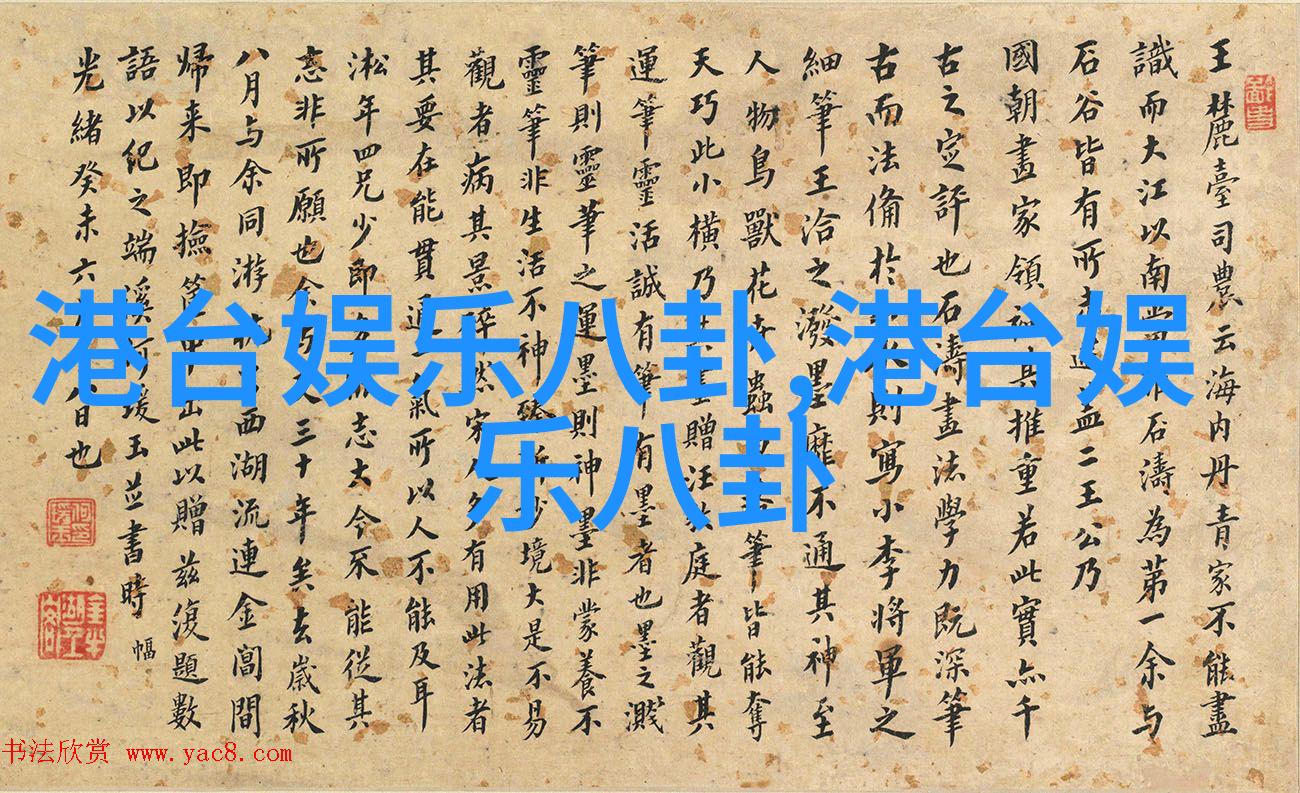 王麓臺司農云海内丹青家不能盡
識而大江以南當推石濤為第一余与
石谷皆有所未逮盖二王公乃
國朝畫家領袖其推重若此實為千
古之定評也石濤畫法學力既深筆
古而法備於
則寫小李將軍之
細筆王洽之潑墨靡不通其神至
人物鳥獸花卉蟲
筆皆能奪
天巧此小橫乃
贈汪
庭者觀其
運筆靈活誠有筆有墨者也墨之濺
筆則靈筆之運墨則神墨非蒙養不
靈筆非生活不神
境大是不易
觀者病其景碎然
多有用此法者
其要在能貫通一氣所以人不能及耳
淞年四兄少
即
志去今不能從其
志非所願也余
三十年矣去歲秋
八月与余同游
西湖流連金閶間
歸来即撿
出此以贈兹復題數
語以紀之端溪何瑗玉並書時
幅
光緒癸未六月
日也
港台娱乐八卦,港台娱
乐八卦
书法欣赏 www.yac8.com